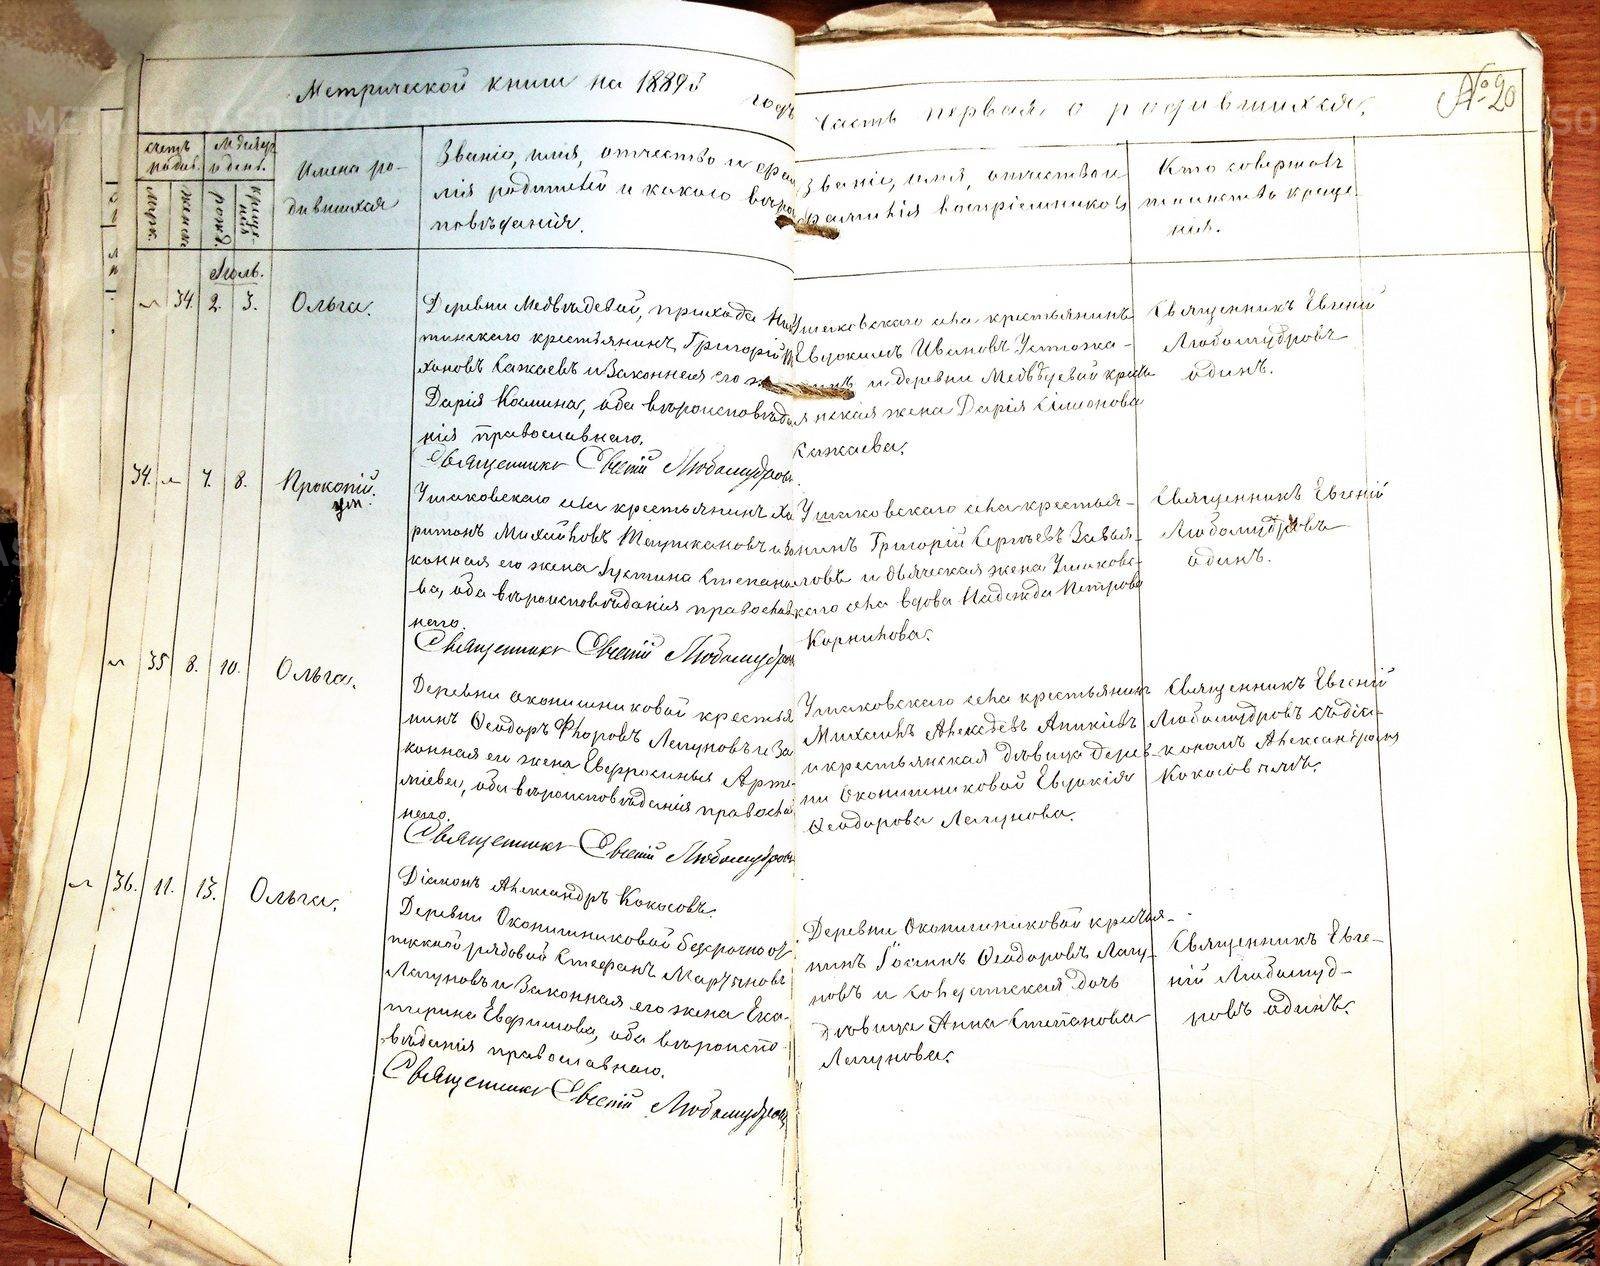 Метрической книги на 1889 годъ
часть первая о родившихся.
№ 20
счетъ родив.
Мѣсяцъ и день.
Имена ро-
дившихся
Званіе, имя, отчество и фами-
лія родителей и какого вѣро-
повѣданія.
Званіе, имя, отчество и
фамилія воспріемниковъ
Кто совершалъ
таинство креще-
нія.
муж.
женск.
рожд.
креще-
нія
Іюль.
34. 2. 3. Ольга.
Деревни Медвѣдевой, прихода
тинскаго крестьянинъ Григорій
хановъ Сажаевъ и Законная его
Дарія Козмина, оба вѣроисповѣда
нія православнаго.
Священникъ Евгеній Любомудровъ.
Ушаковскаго села крестьянинъ
Евдокимъ Ивановъ Устюжа-
нинъ и деревни Медвѣдевой кресть
янская жена Дарія Симонова
Сажаева.
Священникъ Евгеній
Любомудровъ
одинъ.
34. 7. 8. Прокопій.
Ушаковскаго села крестьянинъ Ха
ритонъ Михайловъ и за
конная его жена Іустина Степано
ва, оба вѣроисповѣданія православ
наго.
Священникъ Евгеній Любомудровъ
Ушаковскаго села крестья-
нинъ Григорій Сергѣевъ Завья-
ловъ и дьяческая жена Ушаковс-
каго села вдова Надежда Петрова
Корнилова.
Священникъ Евгеній
Любомудровъ
одинъ.
35 8. 10. Ольга.
Деревни Окопишниковой крестья
нинъ Ѳеодоръ Флоровъ Лагуновъ и За
конная его жена Евфросинья Арте-
міева, оба вѣроисповѣданія правосла
наго.
Священникъ Евгеній Любомудровъ
Діаконъ Александръ Кокосовъ.
Ушаковскаго села крестьянинъ
Михаилъ Алексѣевъ Аникіевъ
и крестьянская дѣвица Дерев-
ни Окопишниковой Евдокія
Ѳеодорова Лагунова.
Священникъ Евгеній
Любомудровъ съ діа-
кономъ Александромъ
Кокосовымъ.
36. 11. 13. Ольга.
Деревни Окопишниковой безсрочно от
пускной рядовой Стефанъ Мартыновъ
Лагуновъ и Законная его жена Ека-
терина Евфимова, оба вѣроиспо-
вѣданія православнаго.
Священникъ Евгеній Любомудровъ
Деревни Окопишниковой крестья-
нинъ Іоаннъ Ѳеодоровъ Лагу-
новъ и солдатская дочь
дѣвица Анна Степанова
Лагунова.
Священникъ Евге-
ній Любомуд-
ровъ одинъ.